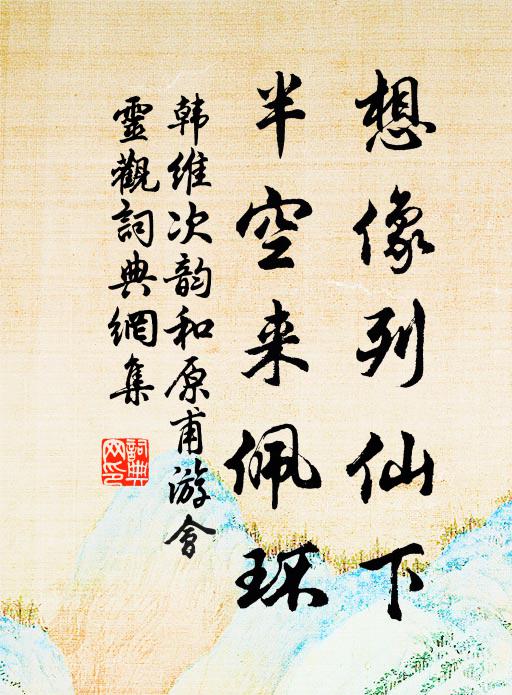 想像列仙下
半空来佩环
韩维次韵和原甫游會
靈觀詞典網集
詞典
网印